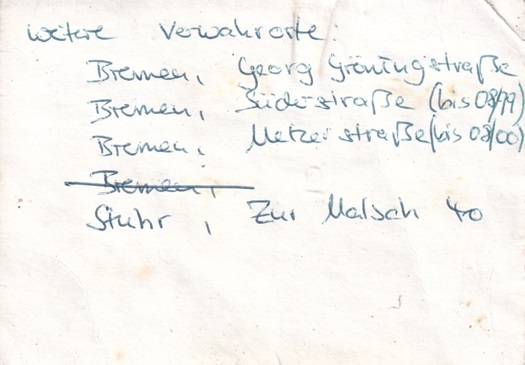 weitere Verwahrorte:
Bremen, Georg Gröningstraße
Bremen, Süderstraße (bis 08/99)
Bremen, Metzerstraße (bis 08/00)
Bremen,
Stuhr, Zur Malsch 40